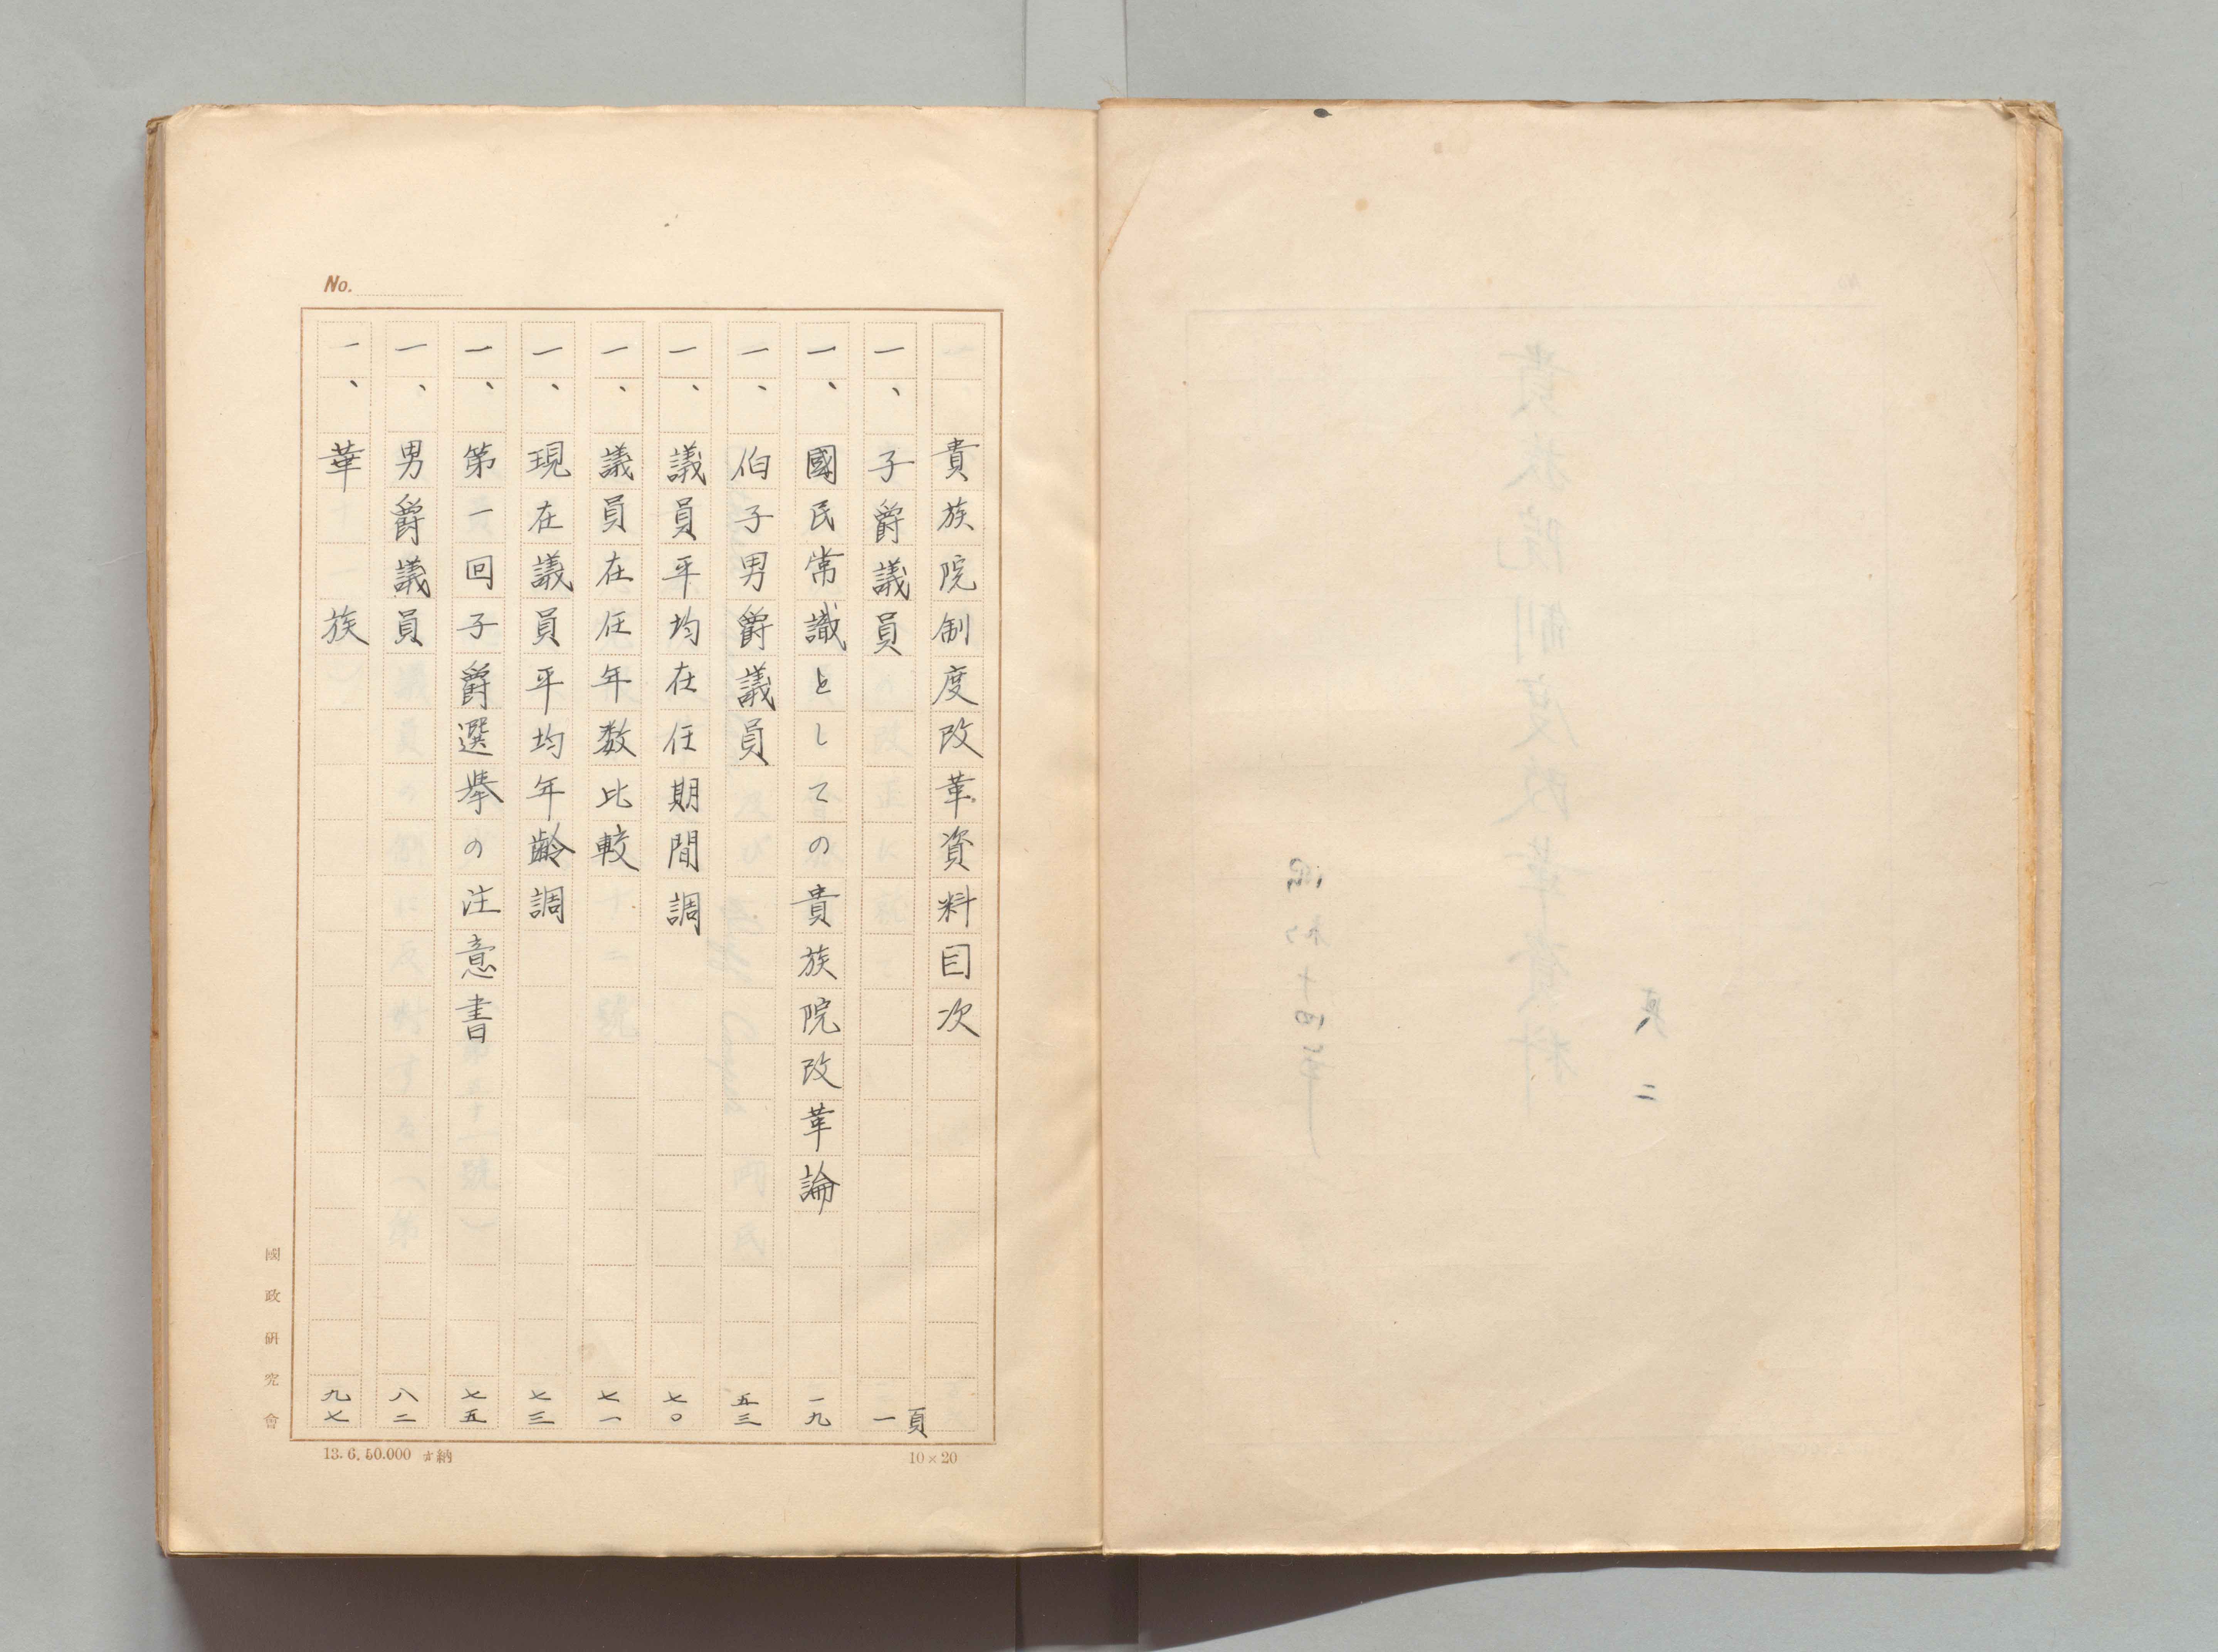 No.
貴族院制度改革資料目次
一、子爵議員 一頁
一、國民常識としての貴族院改革論 一九
一、伯子男爵議員 五三
一、議員平均在任期間調 七〇
一、議員在任年数比較 七一
一、現在議員平均年齢調 七三
一、第一回子爵選挙の注意書 七五
一、男爵議員 八二
一、華族 九七
國政研究會
10×20